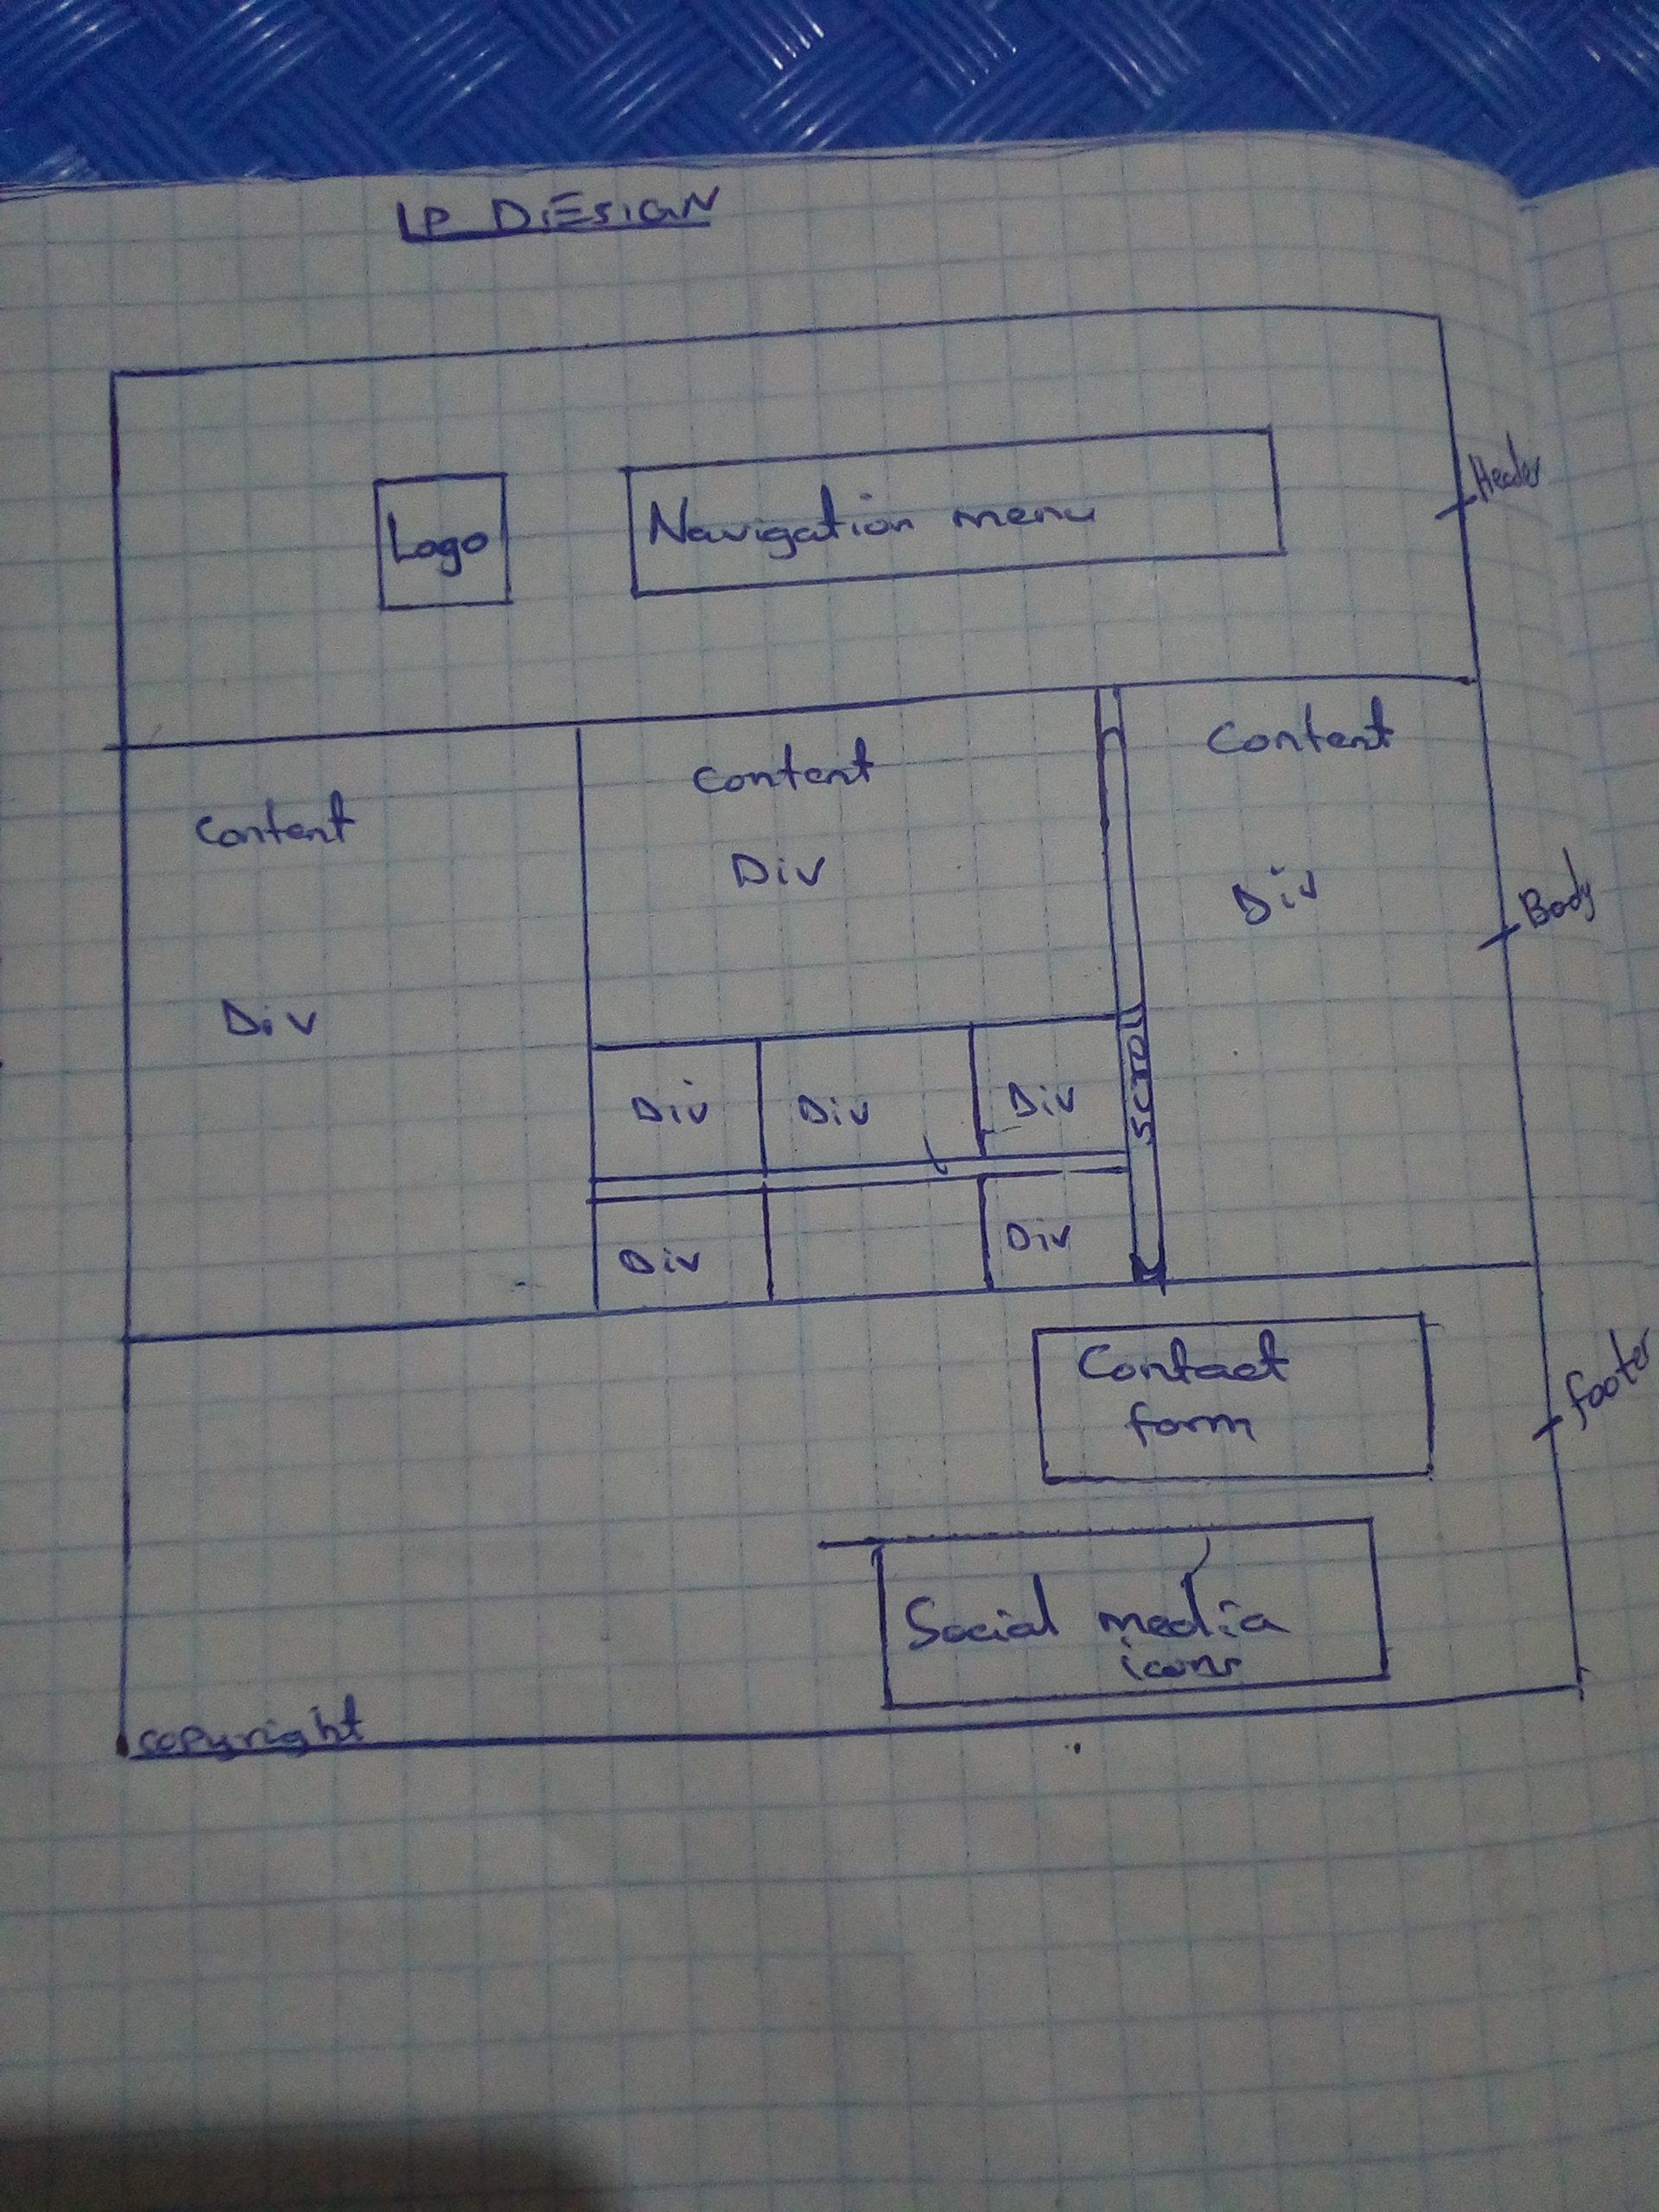 LP DiESiGN
Header
Logo
Navigation menu
Content
Div
Content
Div
Content
Div
Body
Div
Div
Div
scroll
Div
Div
Contact
form
footer
Social media
icons
copyright